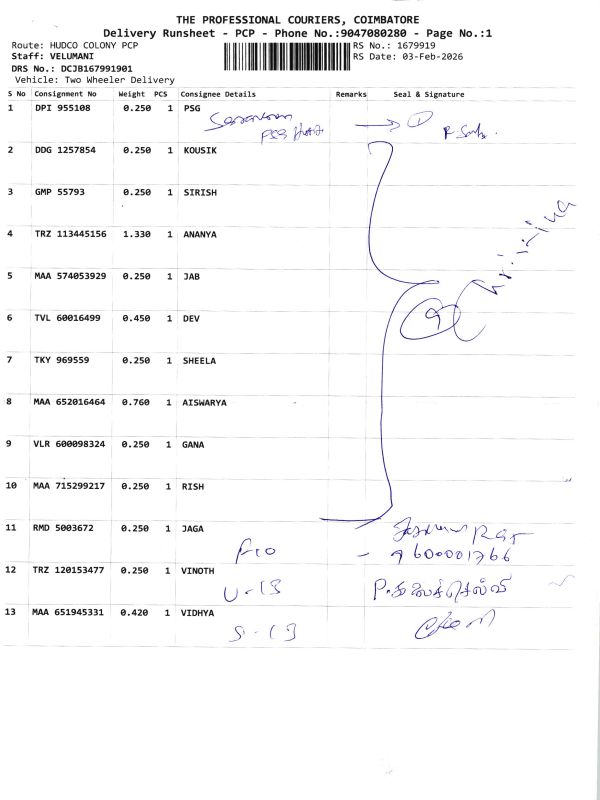 THE PROFESSIONAL COURIERS, COIMBATORE
Delivery Runsheet - PCP - Phone No.:9047080280 - Page No.:1
Route: HUDCO COLONY PCP RS No.: 1679919
Staff: VELUMANI RS Date: 03-Feb-2026
DRS No.: DCJB167991901
Vehicle: Two Wheeler Delivery
S No Consignment No Weight PCS Consignee Details Remarks Seal & Signature
1 DPI 955108 0.250 1 PSG
PSG
2 DDG 1257854 0.250 1 KOUSIK
3 GMP 55793 0.250 1 SIRISH
4 TRZ 113445156 1.330 1 ANANYA
5 MAA 574053929 0.250 1 JAB
6 TVL 60016499 0.450 1 DEV
9
7 TKY 969559 0.250 1 SHEELA
8 MAA 652016464 0.760 1 AISWARYA
9 VLR 600098324 0.250 1 GANA
10 MAA 715299217 0.250 1 RISH
11 RMD 5003672 0.250 1 JAGA
9600001766
12 TRZ 120153477 0.250 1 VINOTH
U-13 P.கலைச்செல்வி
13 MAA 651945331 0.420 1 VIDHYA
S-13